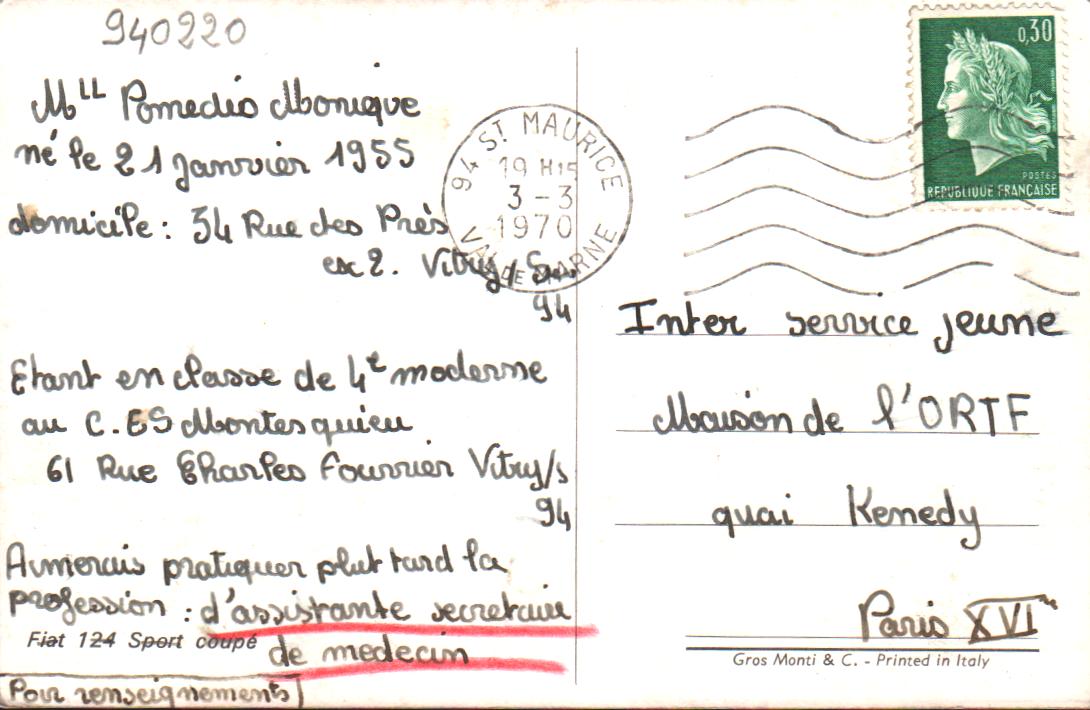 940220
Mll Pomedio Monique
né le 21 janvier 1955
domicile : 34 Rue des Près
esc 2. Vitry/S.
94
Etant en classe de 4e moderne
au C.ES Montesquieu
61 Rue Charles Fourrier Vitry/s
94
Aimerais pratiquer plut tard la
profession : d'assistante secretaire
Fiat 124 Sport coupé
de medecin
Pour renseignements
94 ST MAURICE
19 H15
3 - 3
1970
VAL DE MARNE
0,30
POSTES
REPUBLIQUE FRANÇAISE
Inter service jeune
Maison de l'ORTF
quai Kenedy
Paris XVI
Gros Monti & C. - Printed in Italy